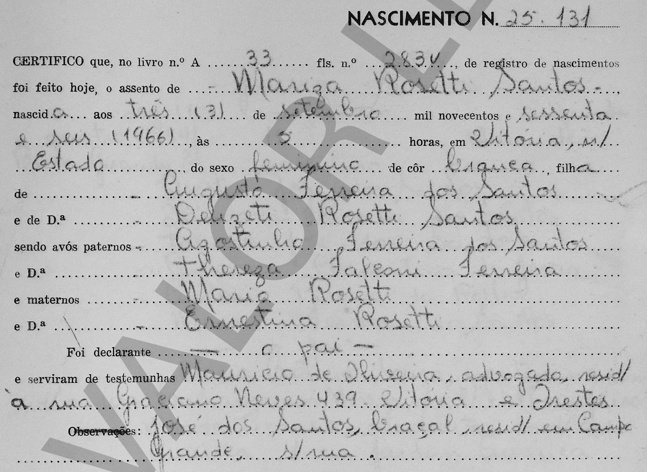 NASCIMENTO N. 25.131
CERTIFICO que, no livro n.º A 33 fls. n.º 283v, de registro de nascimentos
foi feito hoje, o assento de - Mariza Rosetti Santos -
nascida aos três (3) de setembro mil novecentos e sessenta
e seis (1966), às horas, em Vitoria, n/
Estado do sexo feminino de côr branca, filha
de - Augusto Ferreira dos Santos
e de D.ª - Delizeti Rosetti Santos
sendo avós paternos - Agostinho Ferreira dos Santos
e D.ª - Thereza Falconi Ferreira
e maternos - Mario Rosetti
e D.ª - Ernestina Rosetti
Foi declarante — o pai —
e serviram de testemunhas Mauricio de Oliveira, advogado, resid/
à rua Graciano Neves 439 Vitoria e Orestes
Observações: José dos Santos, braçal, resid/ em Campo
Grande, s/rua.
VALOR